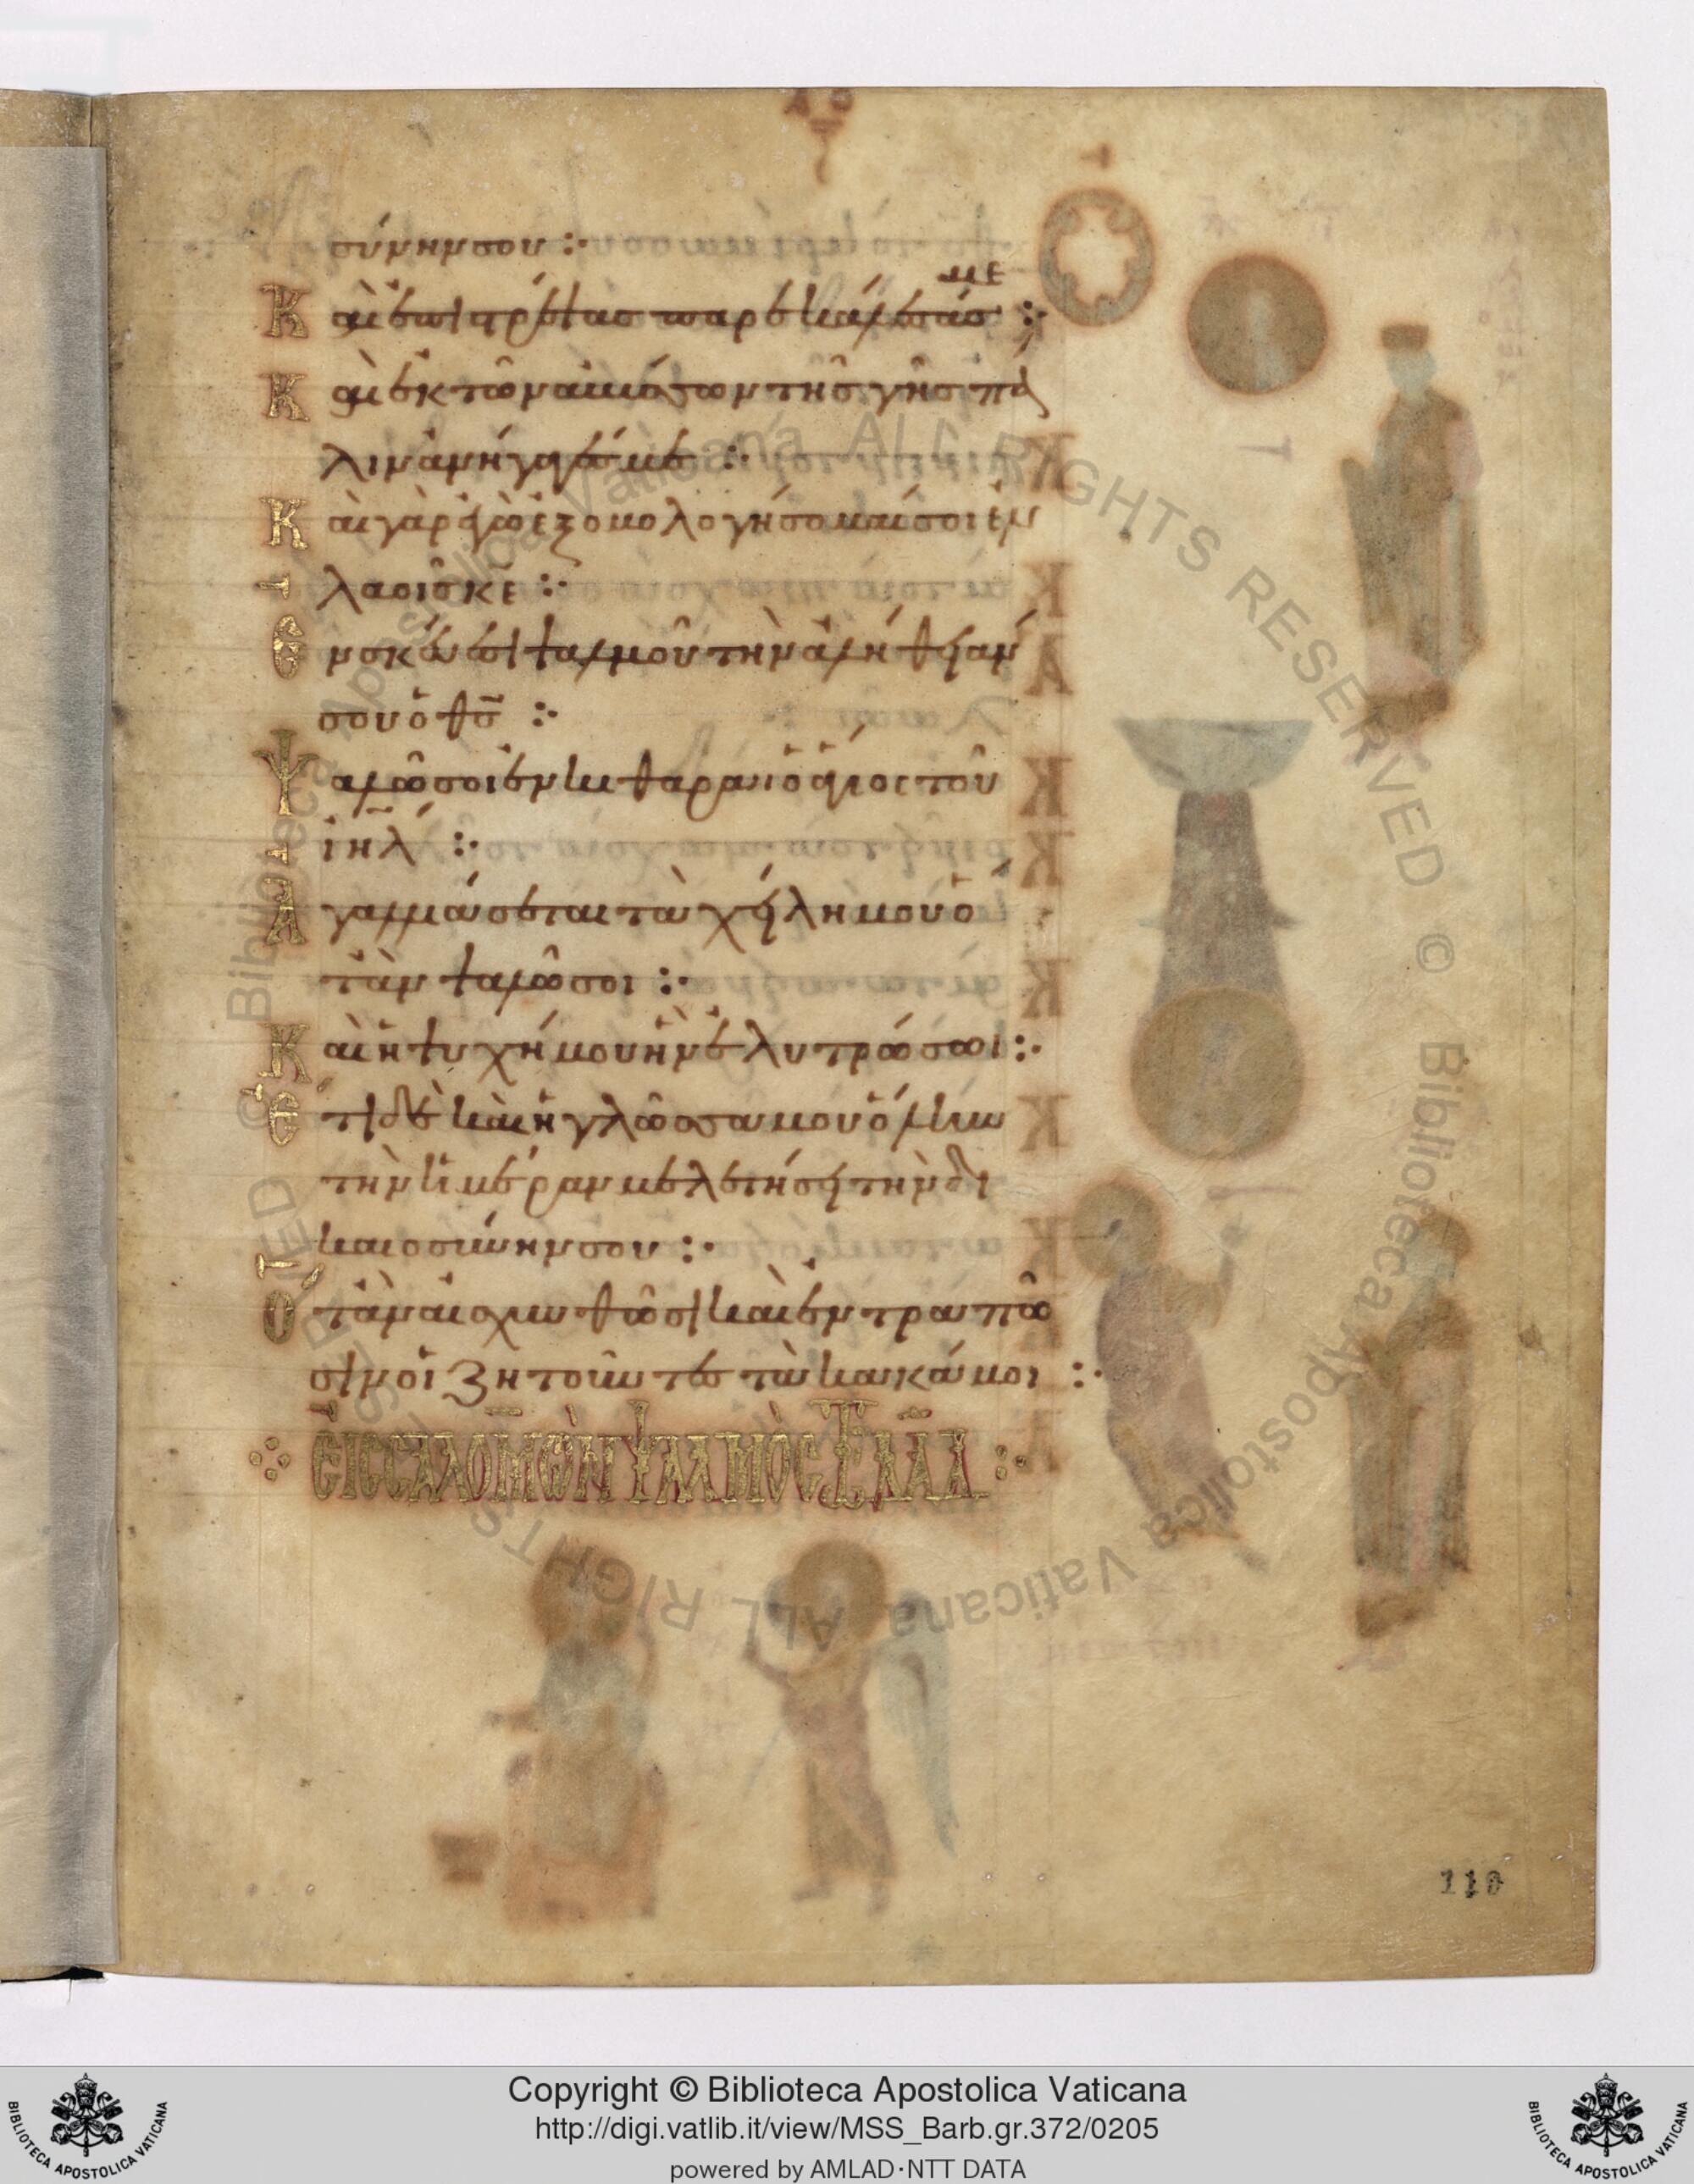 σύνην σου :·
Καὶ ἐπιστρέψας παρεκάλεσάς με :·
Καὶ ἐκ τῶν ἀβύσσων τῆς γῆς πά
λιν ἀνήγαγές με :·
Καὶ γὰρ ἐγὼ ἐξομολογήσομαί σοι ἐν
λαοῖς κε :·
Ἐν σκεύει ψαλμοῦ τὴν ἀλήθειάν
σου ὁ θς :·
Ψαλῶ σοι ἐν κιθάρα ὁ ἅγιος τοῦ
ιηλ :·
Ἀγαλλιάσεται τὰ χείλη μου ὅ
τὰν ψαλῶ σοι :·
Καὶ ἡ ψυχή μου ἣν ἐλυτρώσω :·
Ἔτι δὲ καὶ ἡ γλῶσσα μου ὅλην
τὴν ἡμέραν μελετήσει τὴν δι
καιοσύνην σου :·
Ὅταν αἰσχυνθῶσι καὶ ἐντραπῶ
σιν οἱ ζητοῦντες τὰ κακά μοι :·
ΕΙC CΑΛΟΜΩΝ ΨΑΛΜΟC ΤΩ ΔΑΔ :·
110
Copyright © Biblioteca Apostolica Vaticana
http://digi.vatlib.it/view/MSS_Barb.gr.372/0205
powered by AMLAD·NTT DATA
BIBLIOTECA APOSTOLICA VATICANA
BIBLIOTECA APOSTOLICA VATICANA
© Biblioteca Apostolica Vaticana ALL RIGHTS RESERVED © Biblioteca Apostolica Vaticana ALL RIGHTS RESERVED